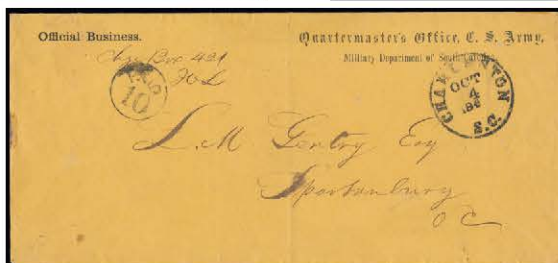 Official Business.
Quartermaster's Office, C. S. Army,
Military Department of South Carolina.
Chg Box 421
PAID
10
CHARLESTON
OCT
4
186
S.C.
L. M Gentry Esq
Spartanburg